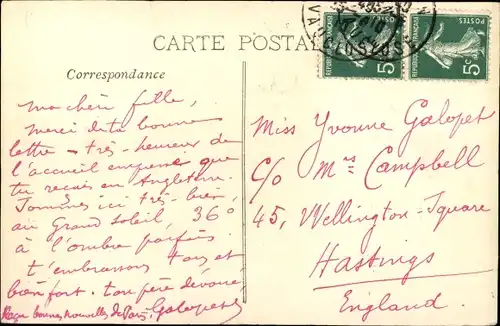 CARTE POSTALE
Correspondance
VAUCLUSE
RÉPUBLIQUE FRANÇAISE
POSTES
5c
RÉPUBLIQUE FRANÇAISE
POSTES
5c
ma chère fille,
merci de ta bonne
lettre - très-heureux de
l'accueil empressé que
tu reçois en Angleterre.
Sommes ici très-bien,
au grand soleil, 36°
à l'ombre parfois
t'embrassons tous et
bien fort. ton père dévoué,
Reçu bonnes nouvelles de Galopet
Miss Yvonne Galopet
C/o Mrs Campbell
45, Wellington-Square
Hastings
England.